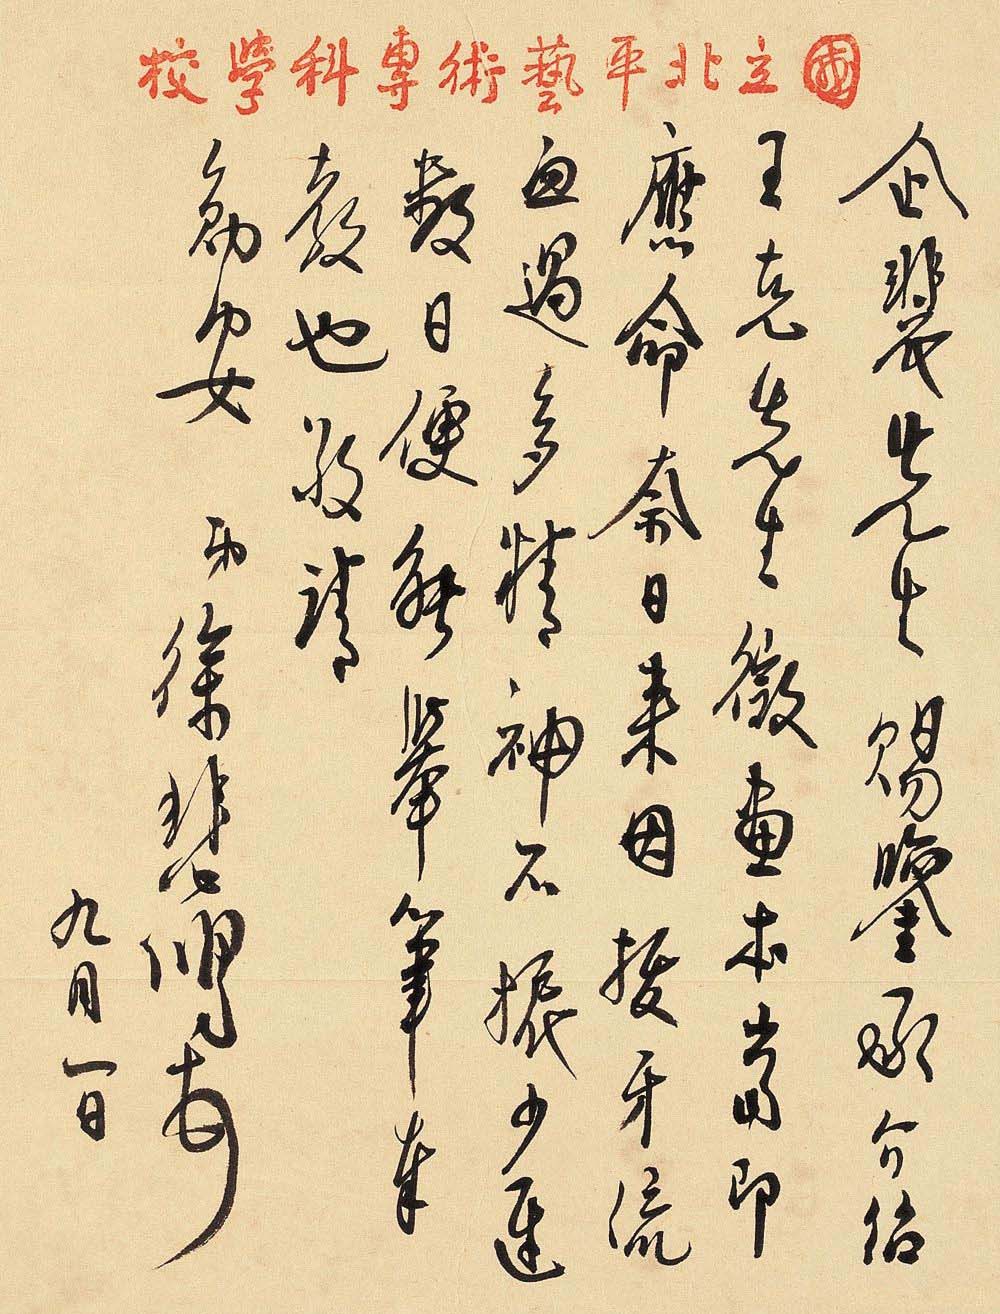 國立北平藝術專科學校
企裴先生賜鑒承介紹
王克先生徵畫本當即
應命奈日來因拔牙流
血過多精神不振少遲
數日便能舉筆奉
教也敬請
勛安 弟徐悲鴻頓首
九月一日